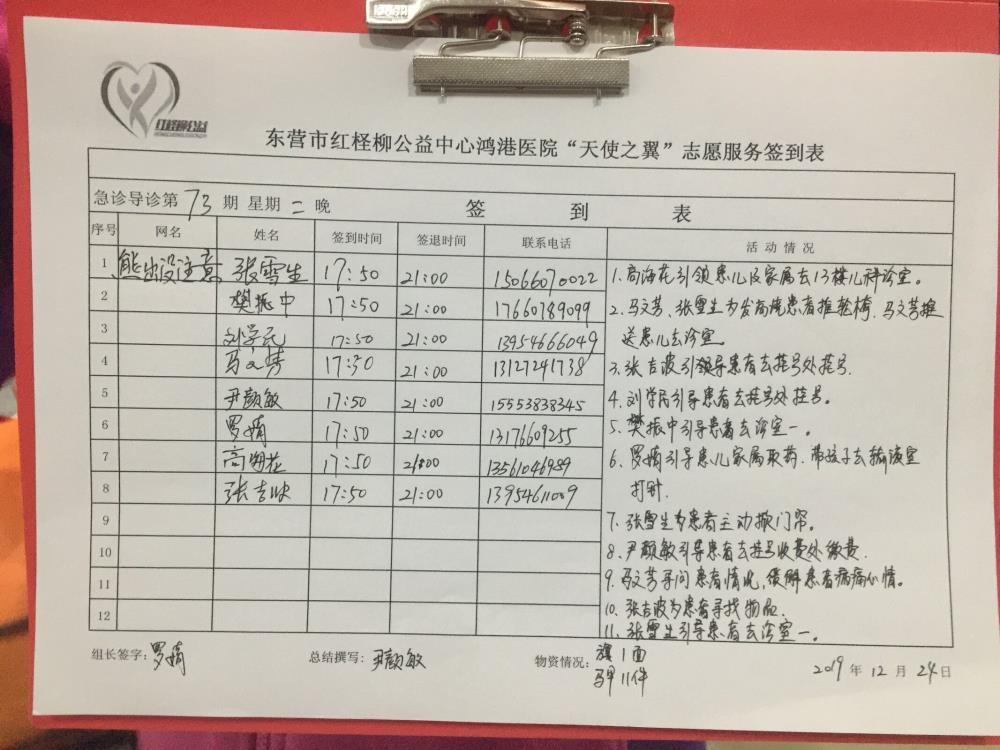 红柽柳公益
东营市红柽柳公益中心鸿港医院“天使之翼”志愿服务签到表
急诊导诊第 73 期 星期 二 晚 签 到 表
序号 网名 姓名 签到时间 签退时间 联系电话 活动情况
1 熊出没注意 张雪生 17:50 21:00 15066070022
2 樊振中 17:50 21:00 17660789099
3 刘学民 17:50 21:00 13954666049
4 马文芳 17:50 21:00 13127241738
5 尹颜敏 17:50 21:00 15553838345
6 罗娟 17:50 21:00 13176609255
7 高海花 17:50 21:00 13561046989
8 张吉波 17:50 21:00 13954611009
9
10
11
12
1、高海花引领患儿及家属去13楼儿科诊室。
2、马文芳、张雪生为发高烧患者推轮椅,马文芳推
送患儿去诊室
3、张吉波引领导患者去挂号处挂号.
4、刘学民引导患者去挂号处挂号。
5、樊振中引导患者去诊室一。
6、罗娟引导患儿家属取药、带孩子去输液室
打针.
7、张雪生为患者主动掀门帘。
8、尹颜敏引导患者去挂号收费处缴费.
9、马文芳寻问患者情况,缓解患者病痛心情。
10、张吉波为患者寻找物品.
11、张雪生引导患者去诊室一。
组长签字:罗娟 总结撰写:尹颜敏 物资情况:旗1面
马甲11件
2019 年 12 月 24 日